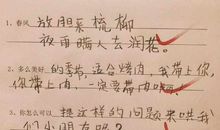 1、春风 放胆来梳柳
夜雨瞒人去润花。
2、多么美好的季节，适合烤肉，我带上你
你带上肉，一定要带肉啊
3、你怎么可以 想这样的问题来哄我
们小朋友呢？